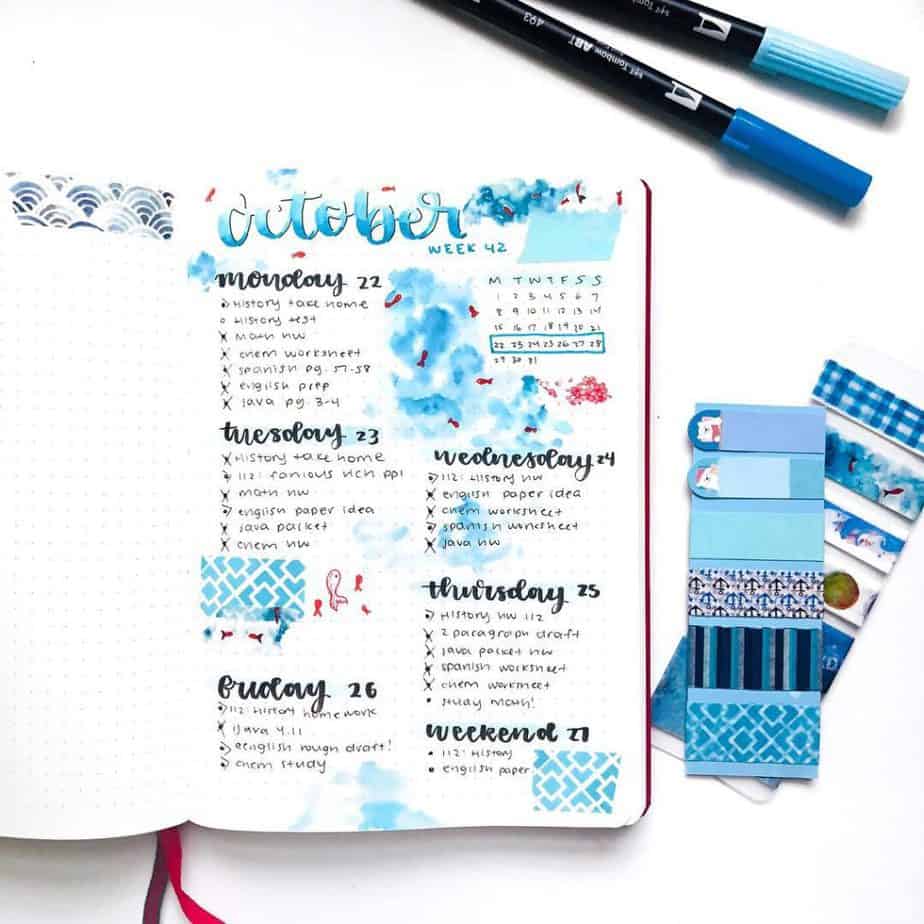 october
WEEK 42
monday 22
History take home
History test
math HW
chem worksheet
spanish pg. 57-58
english prep
java pg. 3-4
M T W T F S S
1 2 3 4 5 6 7
8 9 10 11 12 13 14
15 16 17 18 19 20 21
22 23 24 25 26 27 28
29 30 31
tuesday 23
History take home
112: famous rich ppl
math HW
english paper idea
java packet
chem HW
wednesday 24
112: History HW
english paper idea
chem worksheet
spanish worksheet
java HW
thursday 25
History HW 112
2 paragraph draft
java packet HW
spanish worksheet
chem worksheet
study math!
friday 26
112: History homework
java 4.11
english rough draft!
chem study
weekend 27
112: History
english paper
Tombow ABT
493
Tombow